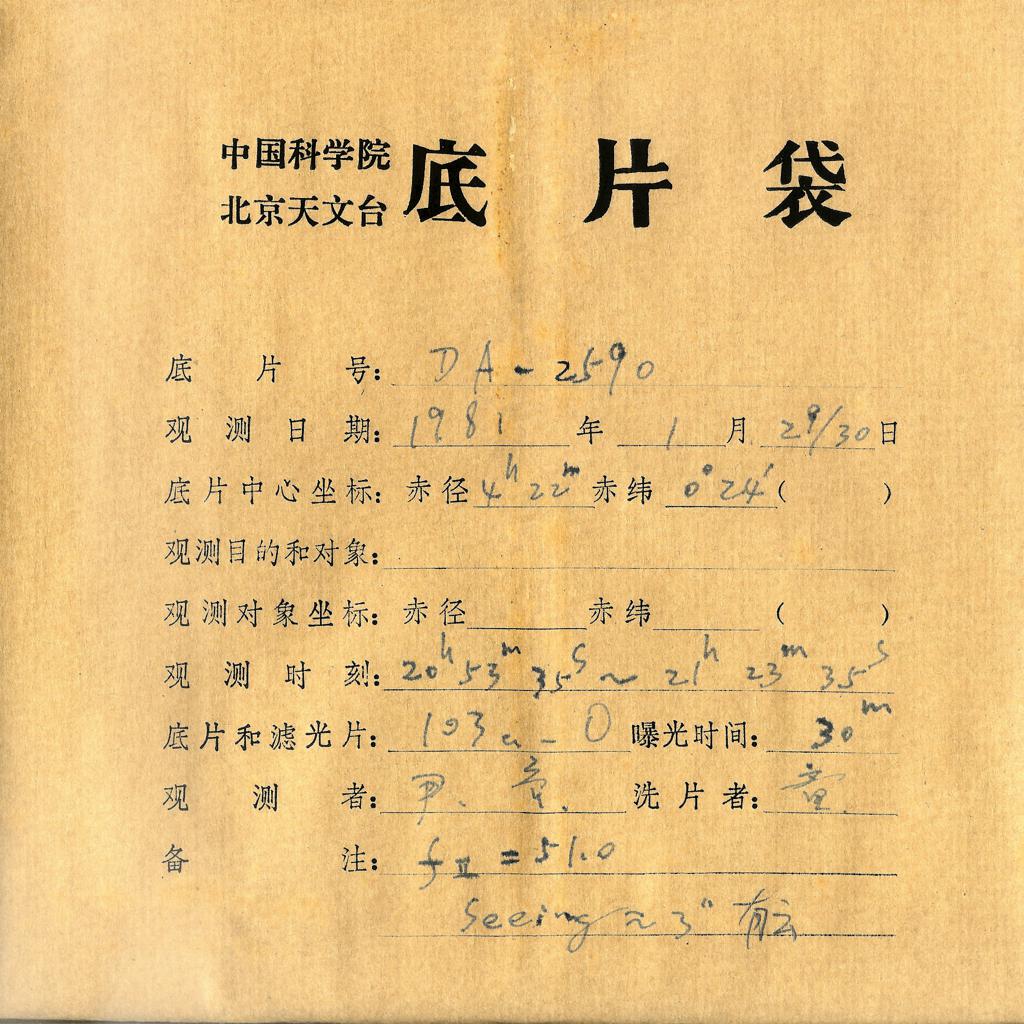 中国科学院
北京天文台
底片袋
底片号: DA-2590
观测日期: 1981年1月29/30日
底片中心坐标: 赤径4ʰ22ᵐ赤纬0°24′( )
观测目的和对象:
观测对象坐标: 赤径 赤纬 ( )
观测时刻: 20ʰ53ᵐ35ˢ~21ʰ23ᵐ35ˢ
底片和滤光片: 103a-O 曝光时间: 30ᵐ
观测者: 尹. 童. 洗片者: 童.
备注: fⅡ=51.0
Seeing≈3″ 有云